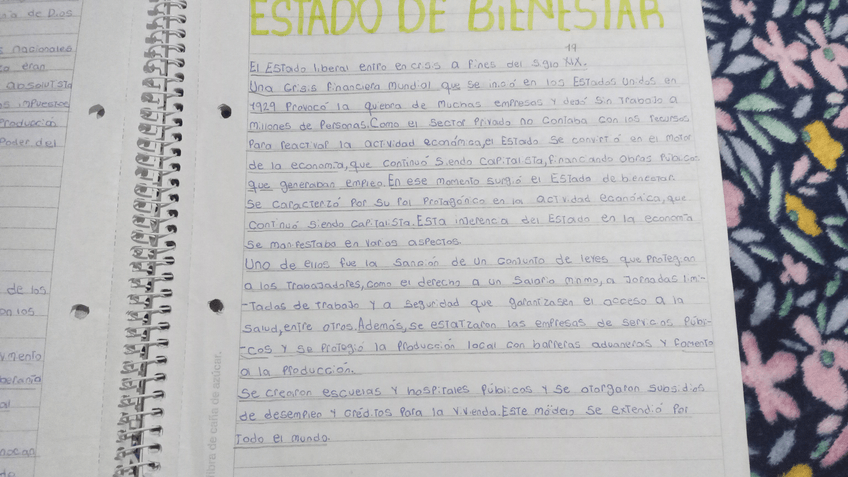 ia de Dios
s nacionales
ca eran
absolutista
os impuestos
Producción
Poder del
de los
on los
vimento
berania
al
nocan
do
ESTADO DE BIENESTAR
19
El Estado liberal entro en crisis a fines del siglo XIX.
Una crisis financiera mundial que se inició en los Estados Unidos en
1929 Provocó la quebra de muchas empresas y dejó sin trabajo a
millones de Personas. Como el sector Privado no contaba con los recursos
Para reactivar la actividad económica, el Estado se convirtió en el motor
de la economía, que continuó siendo capitalista, financiando obras Públicas
que generaban empleo. En ese momento surgió el Estado de bienestar.
Se caracterizó Por su rol Protagónico en la actividad económica, que
continuó siendo capitalista. ESTA injerencia del Estado en la economía
se manifestaba en varios aspectos.
Uno de ellos fue la sanción de un conjunto de leyes que Protegian
a los trabajadores, como el derecho a un Salario mínimo, a Jornadas limi-
-Tadas de trabajo y a seguridad que garantizasen el acceso a la
salud, entre otros. Además, se estatizaron las empresas de servicios Públi-
-cos y se Protegió la Producción local con barreras aduaneras y fomento
a la Producción.
Se crearon escuelas y hospitales Públicos y se otorgaron subsidios
de desempleo y créditos Para la vivienda. Este modelo se extendió Por
Todo el mundo.
bra de caña de azúcar.